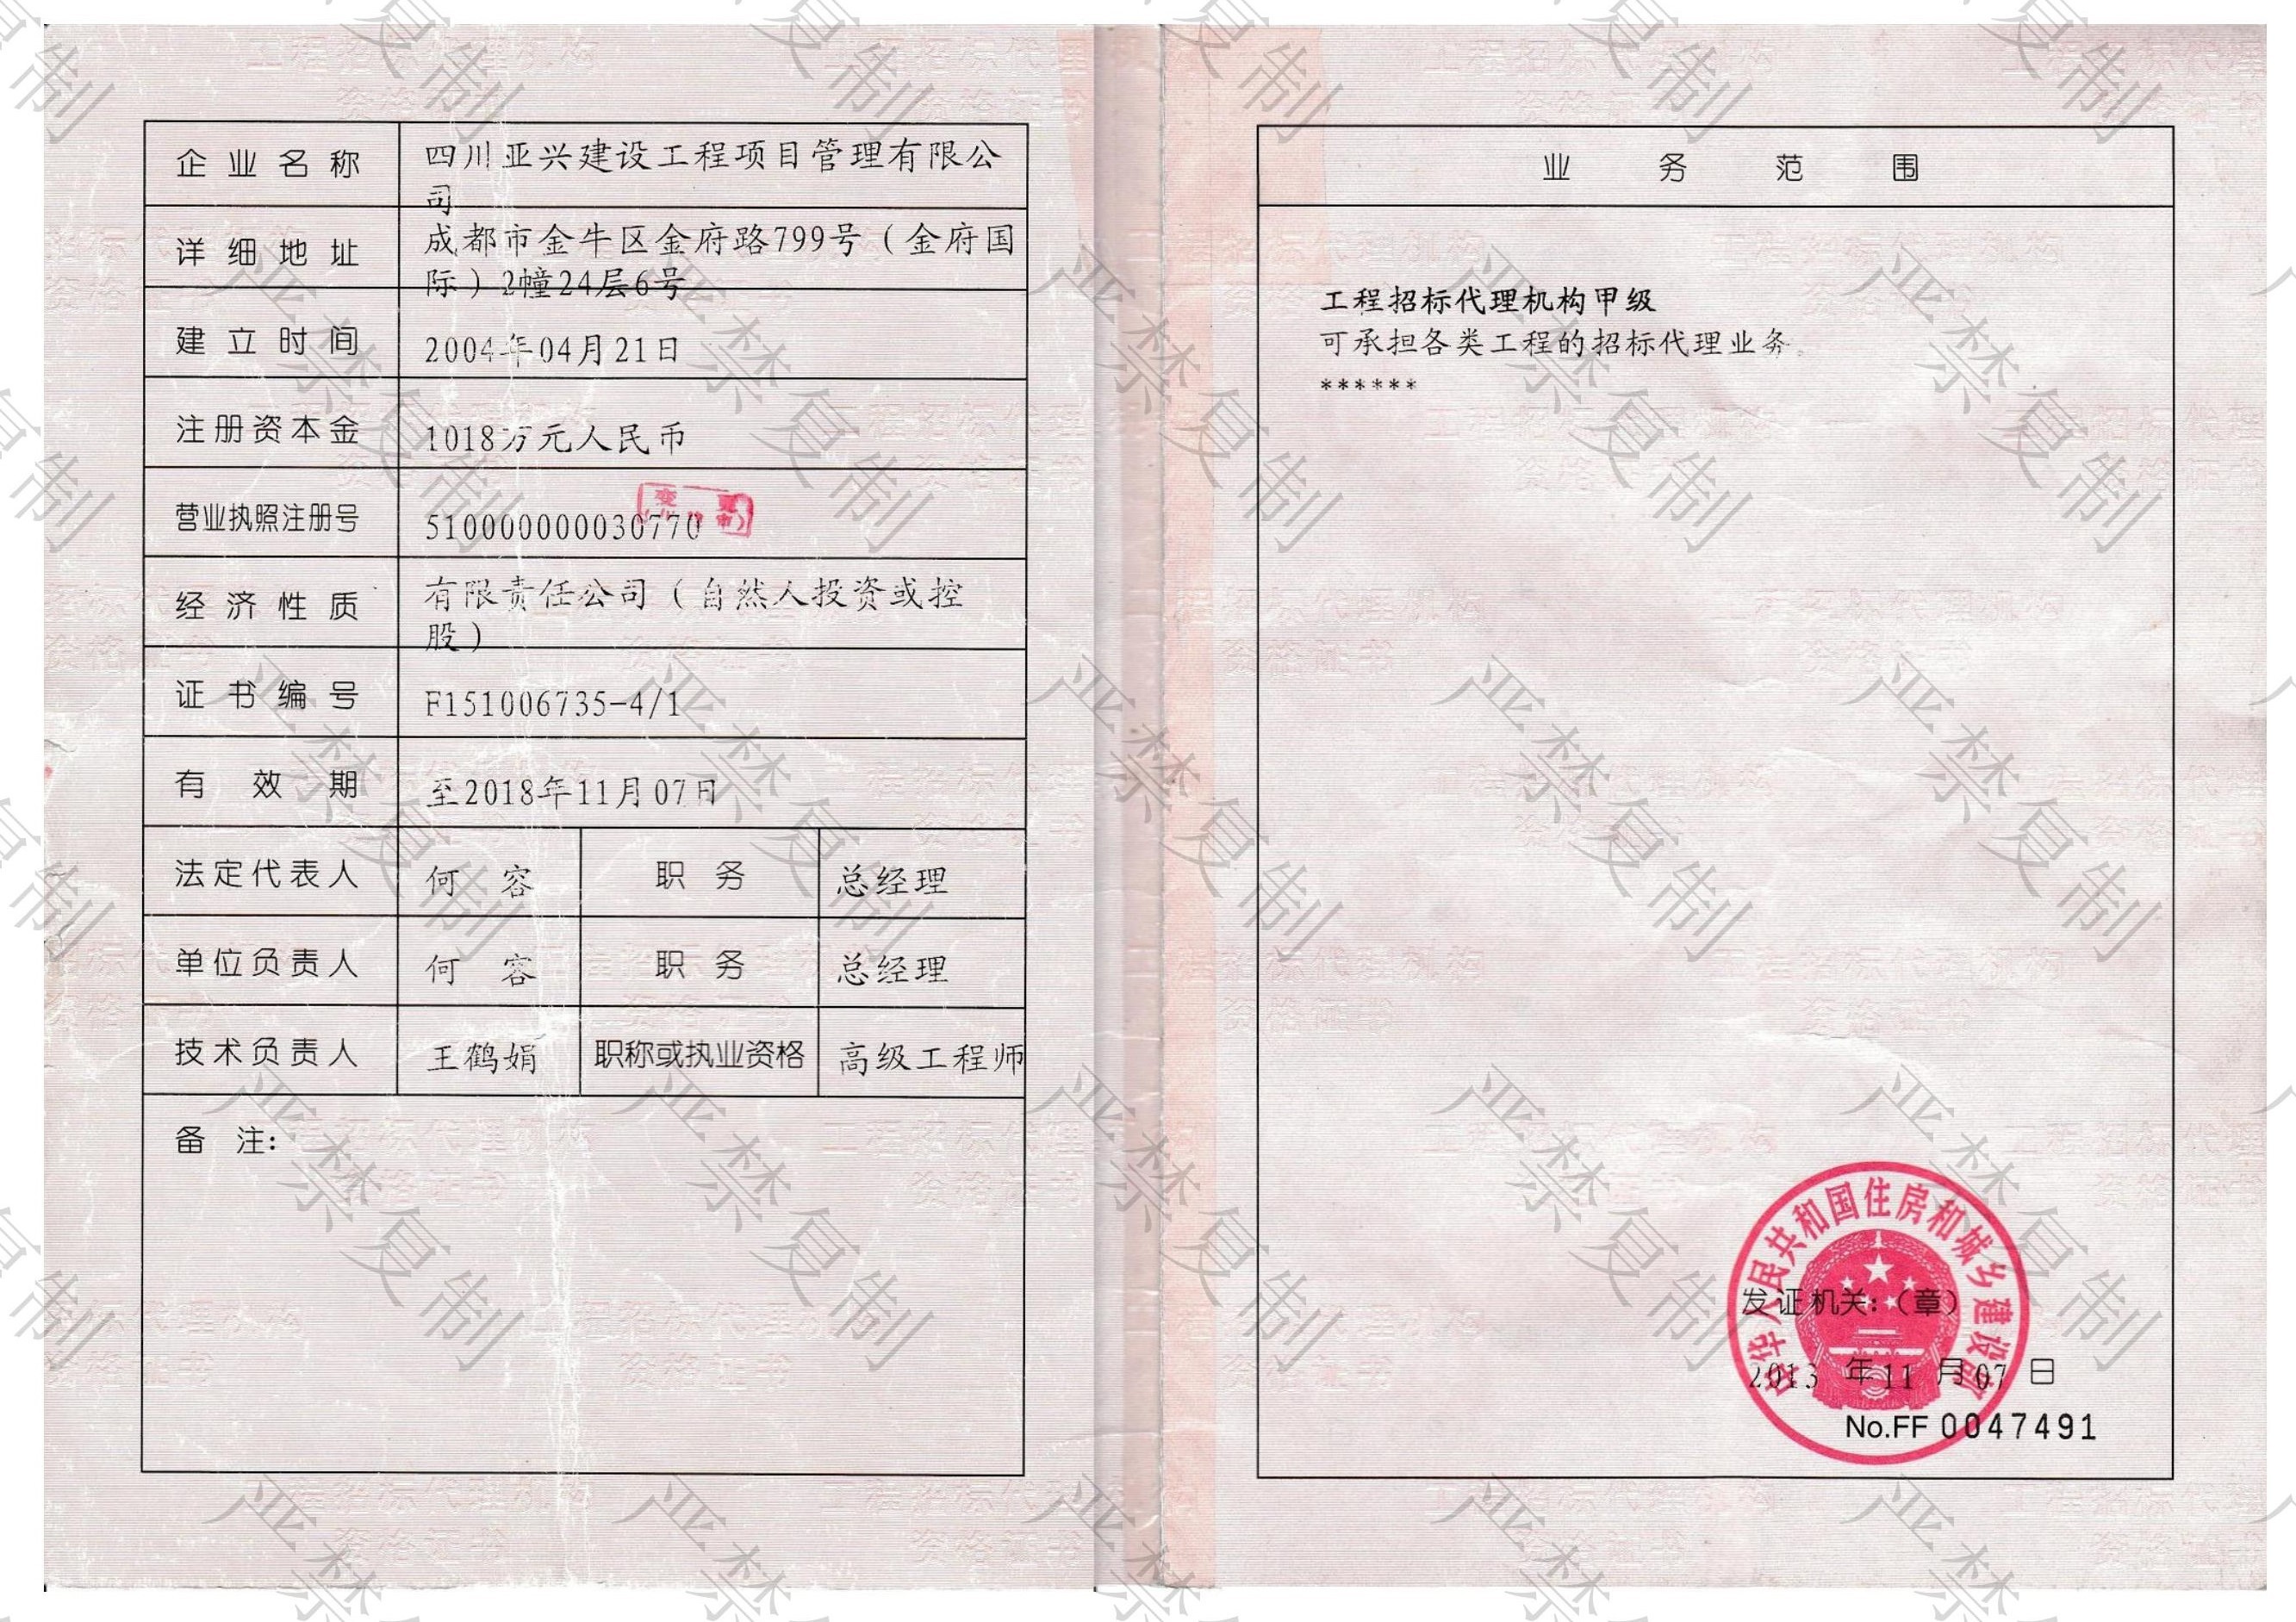 企业名称 四川亚兴建设工程项目管理有限公
司
详细地址 成都市金牛区金府路799号（金府国
际）2幢24层6号
建立时间 2004年04月21日
注册资本金 1018万元人民币
营业执照注册号 510000000030770
变更
经济性质 有限责任公司（自然人投资或控
股）
证书编号 F151006735-4/1
有效期 至2018年11月07日
法定代表人 何容 职务 总经理
单位负责人 何容 职务 总经理
技术负责人 王鹤娟 职称或执业资格 高级工程师
备注:
业务范围
工程招标代理机构甲级
可承担各类工程的招标代理业务。
******
中华人民共和国住房和城乡建设部
发证机关:（章）
2013年11月07日
No.FF 0047491
严禁复制
工程招标代理机构
资格证书